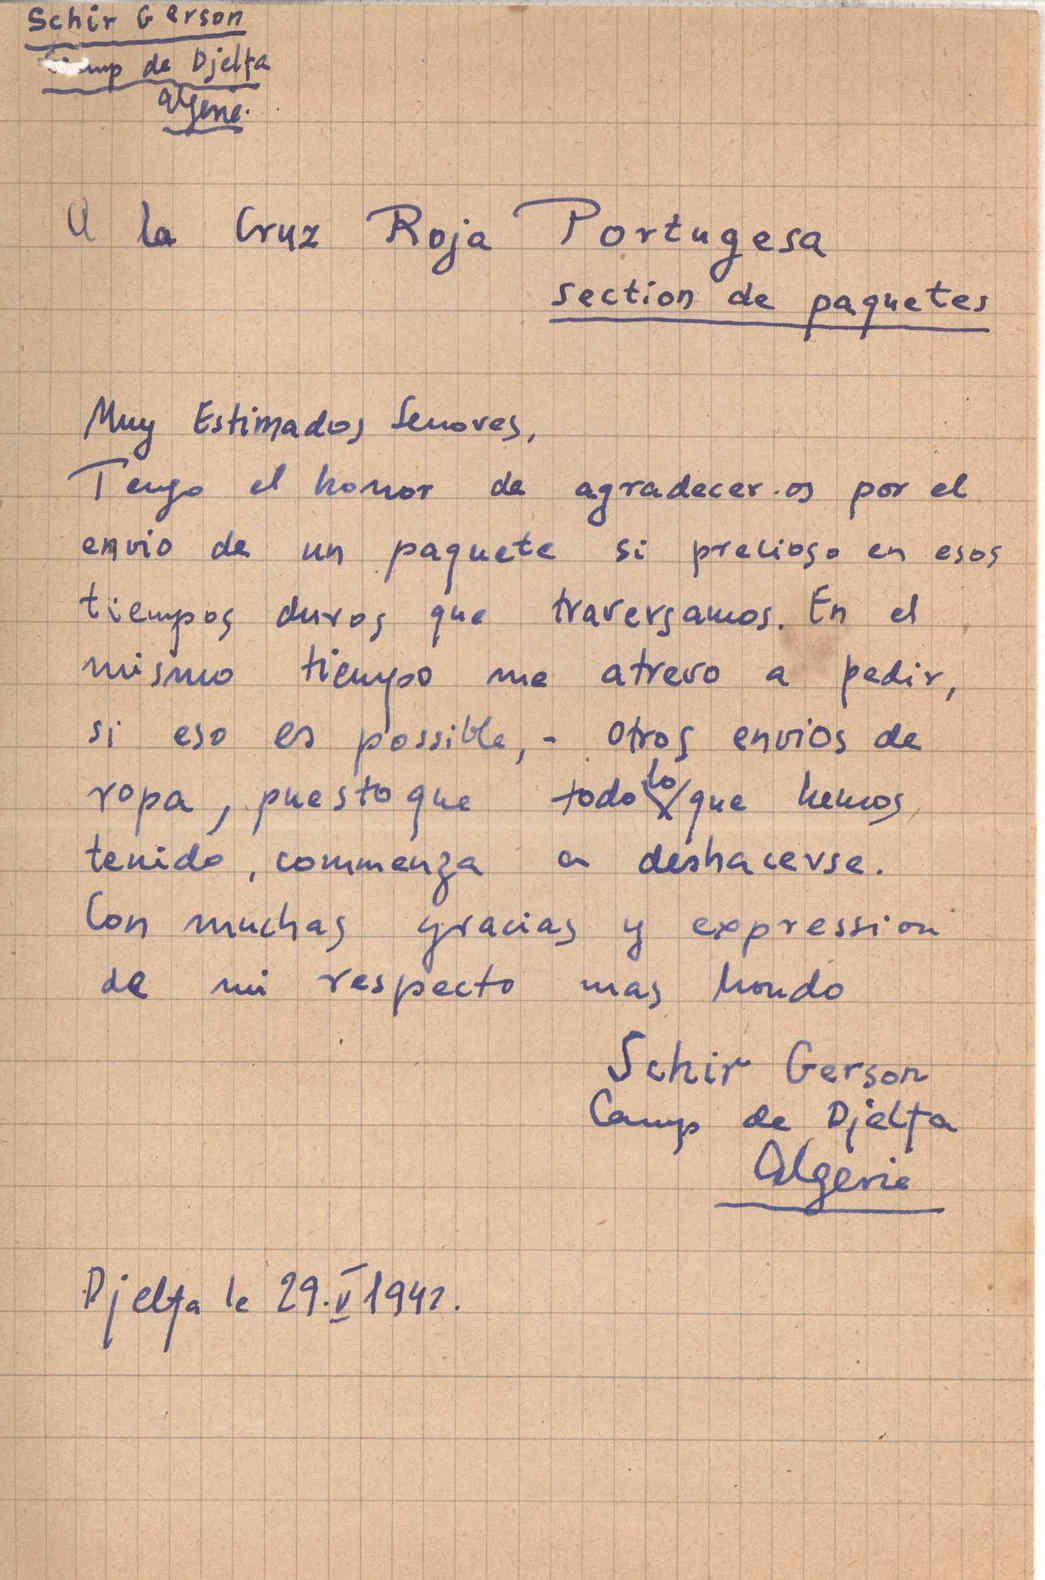 Schir Gerson
Camp de Djelfa
Algerie.
A la Cruz Roja Portugesa
section de paquetes
Muy Estimados Senores,
Tengo el honor de agradecer.os por el
envio de un paquete si precioso en esos
tiempos duros que traversamos. En el
mismo tiempo me atrevo a pedir,
si eso es possible, - otros envios de
ropa, puesto que todo lo que hemos
tenido, commenza a deshacerse.
Con muchas gracias y expression
de mi respecto mas hondo
Schir Gerson
Camp de Djelfa
Algerie
Djelfa le 29.V 1942.